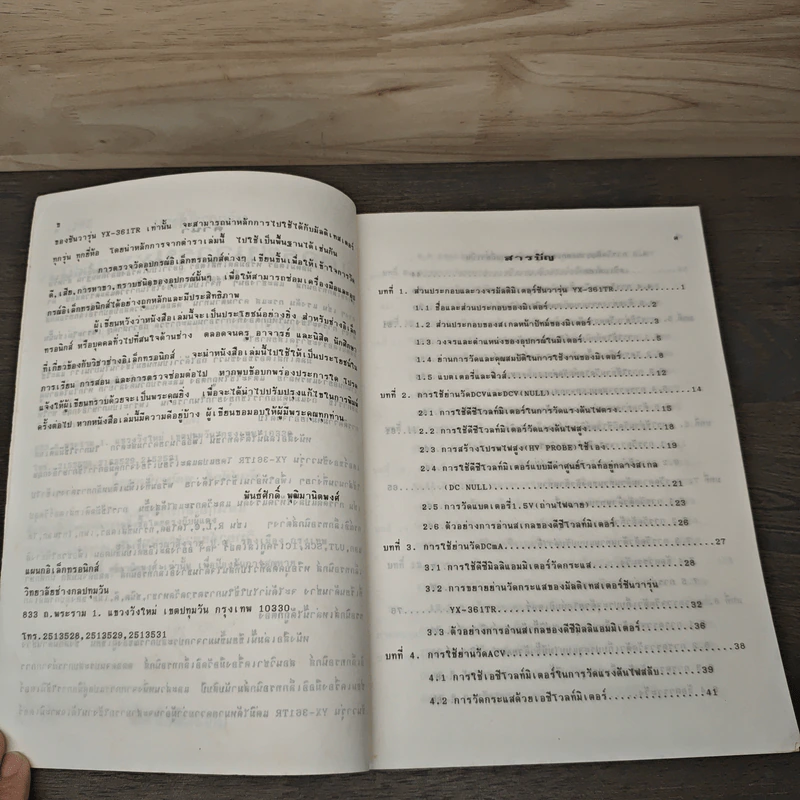 ของซันวารุ่น YX-361TR เท่านั้น จะสามารถนำหลักการไปใช้ได้กับมัลติเทสเตอร์
ทุกรุ่น ทุกยี่ห้อ โดยนำหลักการจากตำราเล่มนี้ ไปใช้เป็นพื้นฐานได้เช่นกัน
การตรวจวัดอุปกรณ์อิเล็กทรอนิกส์ต่างๆ เขียนขึ้นเพื่อให้เข้าใจการวัด
ดี,เสีย,การหาขา,ทราบชนิดของอุปกรณ์นั้นๆ เพื่อให้สามารถซ่อมเครื่องมือและอุป
กรณ์อิเล็กทรอนิกส์ได้อย่างถูกหลักและมีประสิทธิภาพ
ผู้เขียนหวังว่าหนังสือเล่มนี้จะเป็นประโยชน์อย่างยิ่ง สำหรับช่างอิเล็ก
ทรอนิกส์ หรือบุคคลทั่วไปที่สนใจด้านช่าง ตลอดจนครู อาจารย์ และนิสิต นักศึกษา
ที่เกี่ยวข้องกับวิชาช่างอิเล็กทรอนิกส์ จะนำหนังสือเล่มนี้ไปใช้ให้เป็นประโยชน์ใน
การเรียน การสอน และการตรวจซ่อมต่อไป หากพบข้อบกพร่องประการใด โปรด
แจ้งให้ผู้เขียนทราบด้วยจะเป็นพระคุณยิ่ง เพื่อจะได้นำไปปรับปรุงแก้ไขในการพิมพ์
ครั้งต่อไป หากหนังสือเล่มนี้มีความดีอยู่บ้าง ผู้เขียนขอมอบให้ผู้มีพระคุณทุกท่าน
พันธ์ศักดิ์ พุฒิมานิตพงศ์
แผนกอิเล็กทรอนิกส์
วิทยาลัยช่างกลปทุมวัน
833 ถ.พระราม 1. แขวงวังใหม่ เขตปทุมวัน กรุงเทพ 10330
โทร.2513528,2513529,2513531
สารบัญ
บทที่ 1. ส่วนประกอบและวงจรมัลติมิเตอร์ซันวารุ่น YX-361TR...............1
1.1 ชื่อและส่วนประกอบของมิเตอร์...................2
1.2 ส่วนประกอบของสเกลหน้าปัทม์ของมิเตอร์...........3
1.3 วงจรและตำแหน่งของอุปกรณ์ในมิเตอร์.............6
1.4 ย่านการวัดและคุณสมบัติในการใช้งานของมิเตอร์.......8
1.5 แบตเตอรี่และฟิวส์..........................12
บทที่ 2. การใช้ย่านวัดDCVและDCV(NULL).......................14
2.1 การใช้ดีซีโวลท์มิเตอร์ในการวัดแรงดันไฟตรง........15
2.2 การใช้ดีซีโวลท์มิเตอร์วัดแรงดันไฟสูง.............18
2.3 การสร้างโปรบไฟสูง(HV PROBE)ใช้เอง...........19
2.4 การใช้ดีซีโวลท์มิเตอร์แบบมีค่าศูนย์โวลท์อยู่กลางสเกล
(DC NULL)..............................21
2.5 การวัดแบตเตอรี่1.5V(ถ่านไฟฉาย)..............23
2.6 ตัวอย่างการอ่านสเกลของดีซีโวลท์มิเตอร์..........26
บทที่ 3. การใช้ย่านวัดDCmA..................................27
3.1 การใช้ดีซีมิลลิแอมมิเตอร์วัดกระแส...............28
3.2 การขยายย่านวัดกระแสของมัลติเทสเตอร์ซันวารุ่น
YX-361TR..............................32
3.3 ตัวอย่างการอ่านสเกลของดีซีมิลลิแอมมิเตอร์........36
บทที่ 4. การใช้ย่านวัดACV...................................38
4.1 การใช้เอซีโวลท์มิเตอร์ในการวัดแรงดันไฟสลับ......39
4.2 การวัดกระแสด้วยเอซีโวลท์มิเตอร์...............41